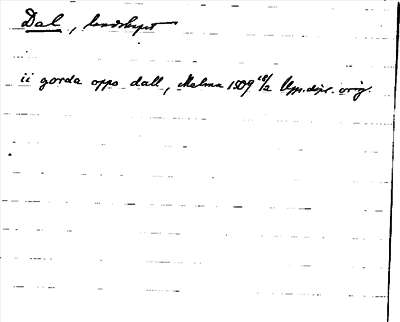 Dal, landskapet
ii gorda oppo dall, Malma 1509 18/2 Upps.dipl. orig.